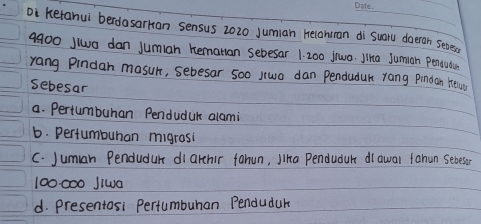 Date
Di ketahui berdasarkan Sensus 2020 Jumlah kelahiran di Suatu daerah Sebesar
9900 Jiwa dan Jumlah kematian Sebesar 1.200 Jiwa. Jika Jumlah Penduduk
yang Pindah masuk, Sebesar 500 Jiwa dan Penduduk yang Pindah keluar
Sebesar
a. Pertumbuhan Penduduk alami
b. Pertumbuhan migrasi
c. Jumlah Penduduk diakhir tahun, Jika Penduduk diawal tahun Sebesar
100.000 Jiwa
d. Presentasi Pertumbuhan Penduduk